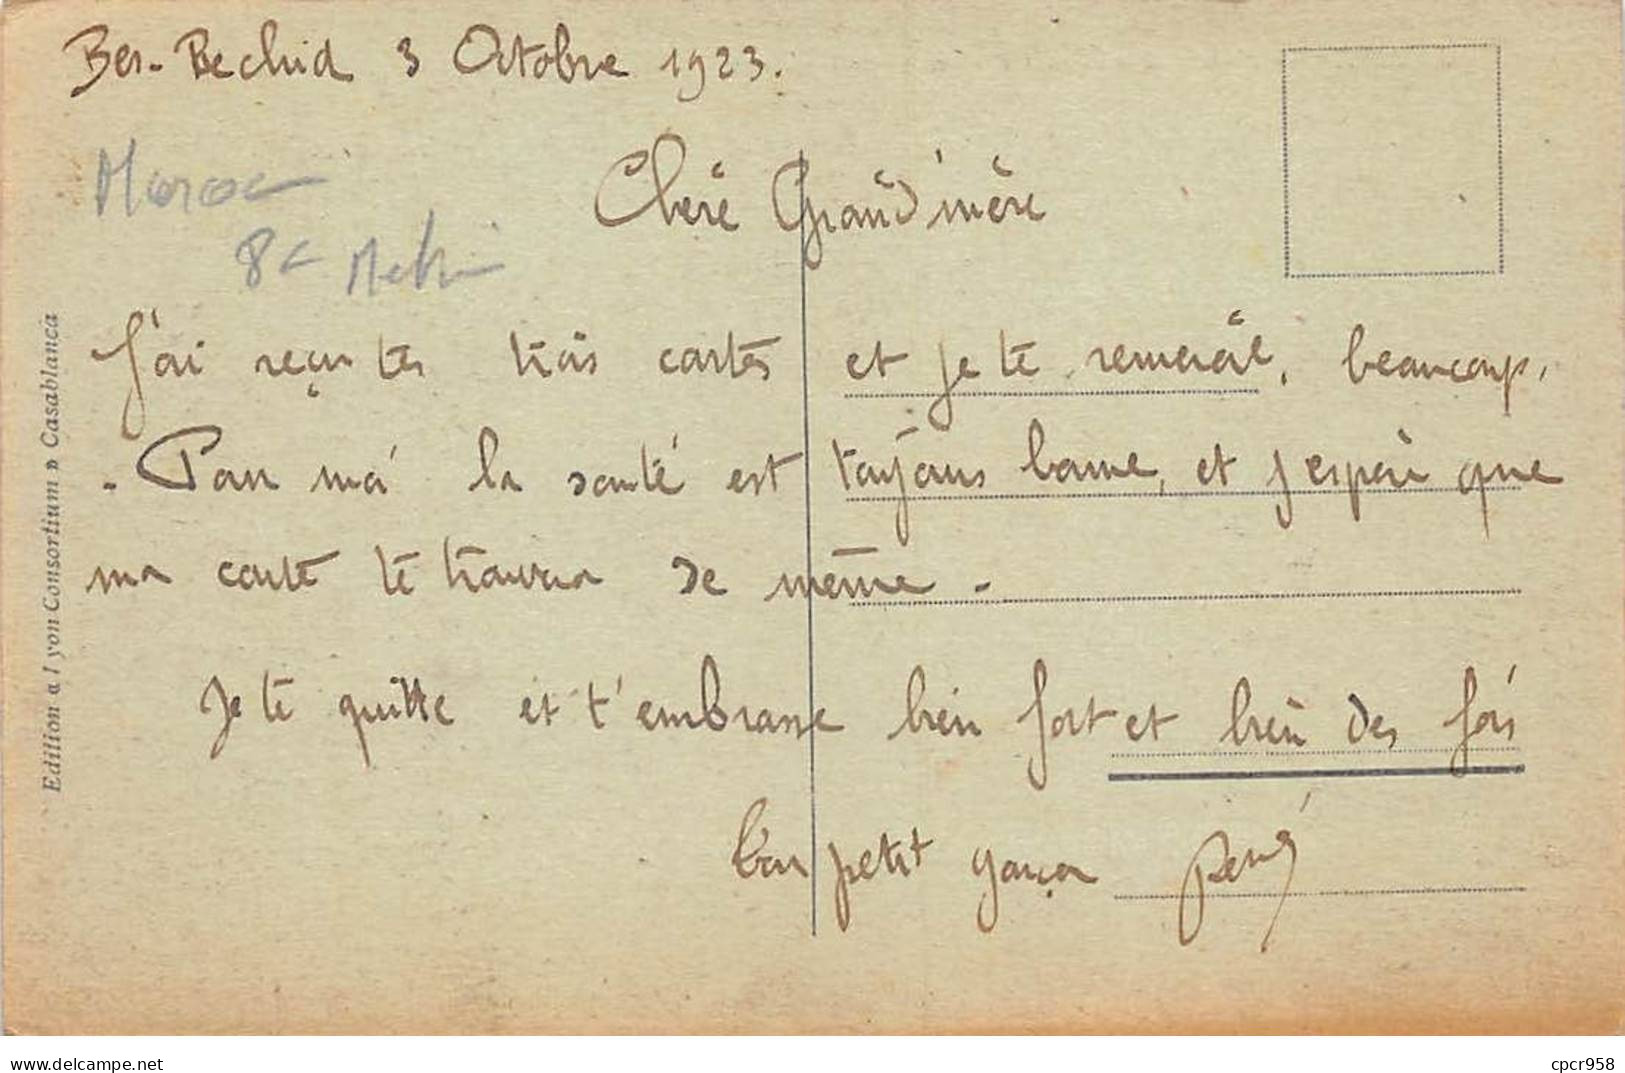 Ber-Rechid 3 Octobre 1923.
Maroc
8c
Chère Grand'mère
J'ai reçu tes trois cartes et je te remercie, beaucoup,
- Pour moi la santé est toujours bonne, et j'espère que
ma carte te trouvera de même -
Je te quitte et t'embrasse bien fort et bien des fois
Ton petit garçon René
Edition « Lyon Consortium » Casablanca
www.delcampe.net
cpcr958